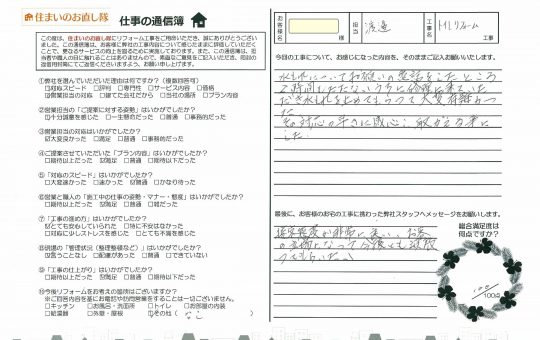 住まいのお直し隊 仕事の通信簿
この度は、住まいのお直し隊にリフォーム工事をご用命いただき、誠にありがとうござい
ました。この通信簿は、お客様に弊社の工事内容について感じたままに評価していただく
ことで、更なるサービスの向上を図るために実施しております。また、この通信簿は、
①弊社を選んでいただいた理由は何ですか?(複数回答可)
対応スピード □評判 □専門性 □サービス内容 □価格
営業担当の対応 □建てた会社だから □当社の場所 □プラン内容
②営業担当の「ご提案に対する姿勢」はいかがでしたか?
十分誠意を感じた □一生懸命だった □普通 □事務的だった
③営業担当の対応はいかがでしたか?
大変良かった □満足 □普通 □事務的だった
④ご提案させていただいた「プラン内容」はいかがでしたか?
□期待以上だった 満足 □普通 □期待以下だった
⑤「対応のスピード」はいかがでしたか?
大変速かった □速かった □普通 □かなり待った
⑥営業と職人の「施工中の仕事の姿勢・マナー・態度」はいかがでしたか?
□期待以上だった 満足 □普通 □期待以下だった
⑦「工事の進め方」はいかがでしたか?
とても安心していられた □特に不安はなかった
□対応に少しストレスを感じた □とても不満を感じた
⑧現場の「管理状況(整理整頓など)」はいかがでしたか?
言うことなし □配慮があった □普通 □できていない
⑨「工事の仕上がり」はいかがでしたか?
□期待以上だった 満足 □普通 □期待以下だった
⑩今後リフォームをお考えの箇所はございますか?
※ご回答内容を基にお電話や訪問営業をすることは一切ございません。
□キッチン □お風呂・洗面所 □トイレ □お部屋の内装
□給湯器 □外壁・屋根 その他( なし )
お客様名
担当 渡邉
工事名 トイレリフォーム 工事
今回の工事について、お感じになった内容を、そのままご記入お願いします。
水もれについてお伺いの電話をしたところ
2時間もたたないうちに修理に来ていた
だき水もれを止めてもらって大変有難かった
その対応の早さに感心し
した。
最後に、お客様のお宅の工事に携わった弊社スタッフへメッセージをお願いします。
の立場になって今後も頑張
ってもらいたい
総合満足度は
何点ですか?
100
100点